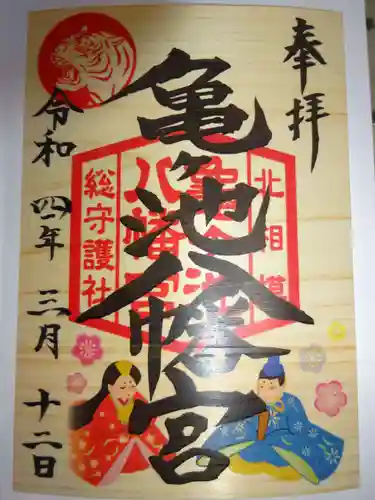 奉拝
亀ヶ池八幡宮
北相模
亀ヶ池
八幡宮
総守護社
令和四年三月十二日